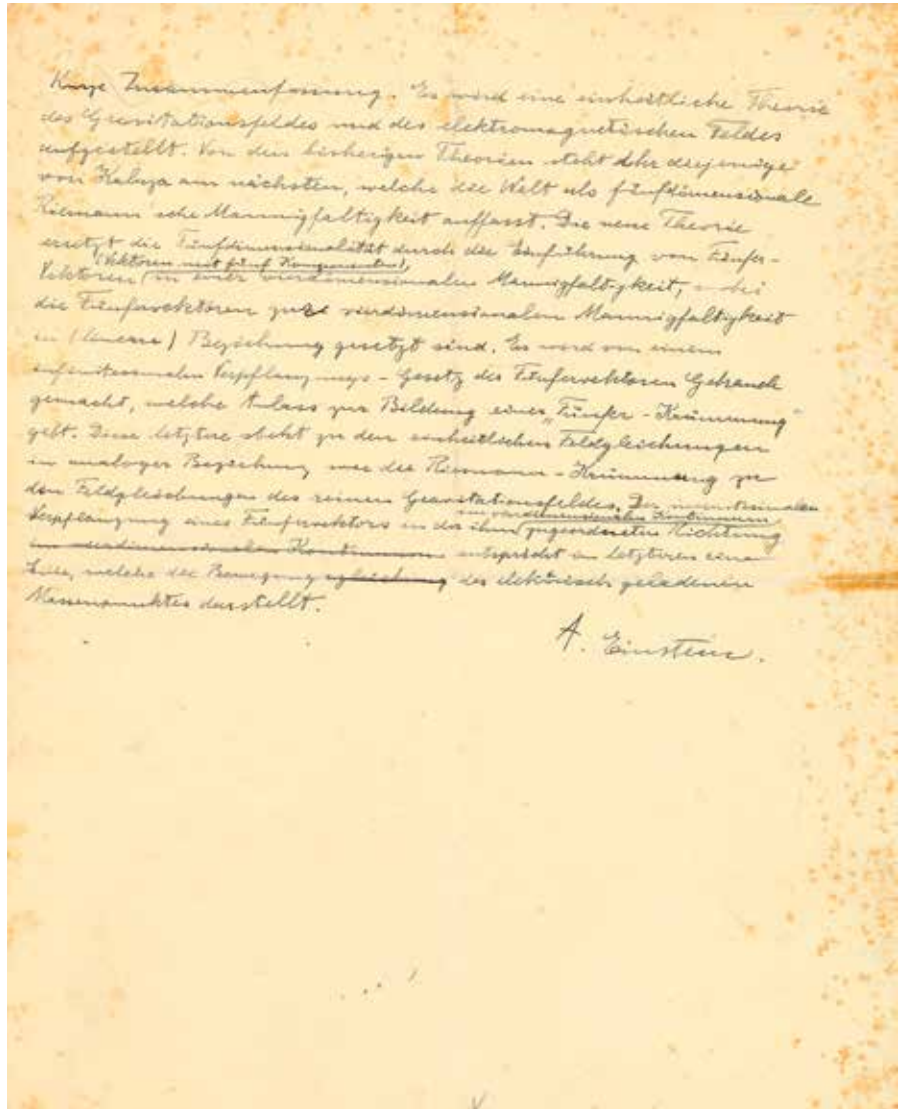 Kurze Zusammenfassung. Es wird eine einheitliche Theorie
des Gravitationsfeldes und des elektromagnetischen Feldes
aufgestellt. Von den bisherigen Theorien steht ihr diejenige
von Kaluza am nächsten, welche die Welt als fünfdimensionale
Riemann'sche Mannigfaltigkeit auffasst. Die neue Theorie
ersetzt die Fünfdimensionalität durch die Einführung von Fünfer-
(Vektoren mit fünf Komponenten)
Vektoren in einer vierdimensionalen Mannigfaltigkeit, wobei
die Fünfervektoren zur vierdimensionalen Mannigfaltigkeit
in (lineare) Beziehung gesetzt sind. Es wird von einem
infinitesimalen Verpflanzungs-Gesetz des Fünfervektoren Gebrauch
gemacht, welche Anlass zur Bildung einer „Fünfer-Krümmung"
gibt. Diese letztere steht zu den einheitlichen Feldgleichungen
in analoger Beziehung wie die Riemann-Krümmung zu
den Feldgleichungen des reinen Gravitationsfeldes. Der
im vierdimensionalen Kontinuum
Verpflanzung eines Fünfervektors in der ihm zugeordneten Richtung
im vierdimensionalen Kontinuum entspricht im letzteren eine
Linie, welche die Bewegungsgleichung des elektrisch geladenen
Massenpunktes darstellt.
A. Einstein.